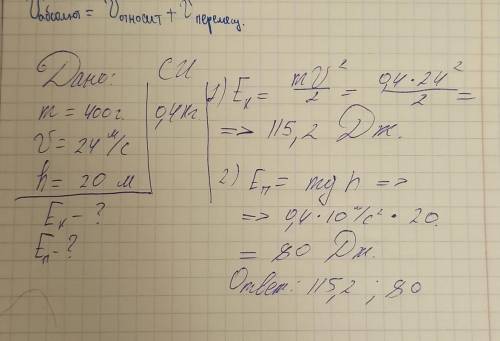 Vабсолют = Vотносит + V перемещ.
Дано:
СИ
m = 400г.
0,4кг
V = 24 м/с
h = 20 м
Eк - ?
Eп - ?
1) Eк = mV²/2 = 0,4·24²/2 =
=> 115,2 Дж.
2) Eп = mgh =>
=> 0,4·10м/с²·20.
= 80 Дж.
Ответ: 115,2 ; 80